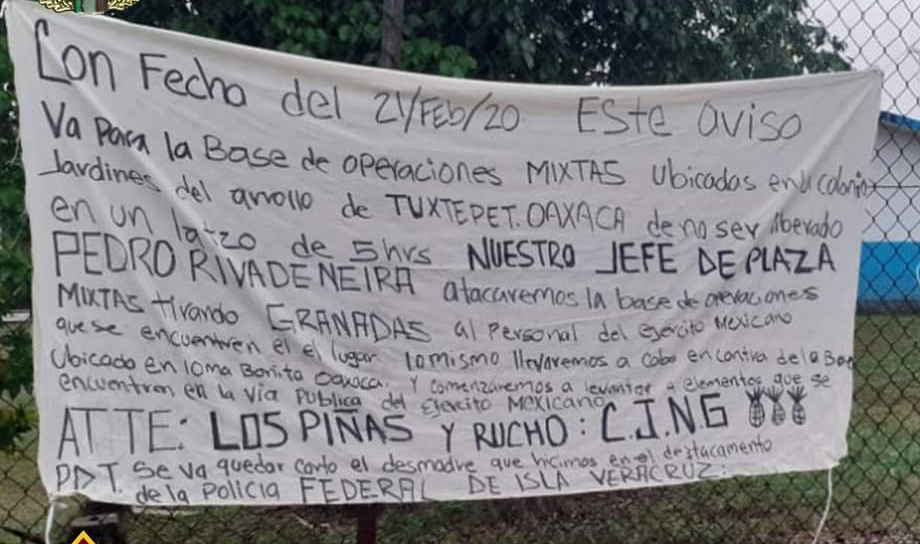 Con Fecha del 21/Feb/20 Este aviso
Va Para la Base de operaciones MIXTAS Ubicadas en la colonia
Jardines del arrollo de TUXTEPET. OAXACA de no ser liberado
en un latzo de 5hrs NUESTRO JEFE DE PLAZA
PEDRO RIVADENEIRA atacaremos la base de operaciones
MIXTAS tirando GRANADAS al Personal del Ejercito Mexicano
que se encuentren el el lugar. lo mismo llevaremos a cabo en contra de la Base
Ubicado en loma Bonita Oaxaca. Y comenzaremos a levantar a elementos que se
encuentren en la Via Publica del Ejercito Mexicano
ATTE: LOS PIÑAS Y RUCHO: C.J.N.G
PDT. Se va quedar corto el desmadre que hicimos en el destacamento
de la Policia FEDERAL DE ISLA VERACRUZ.